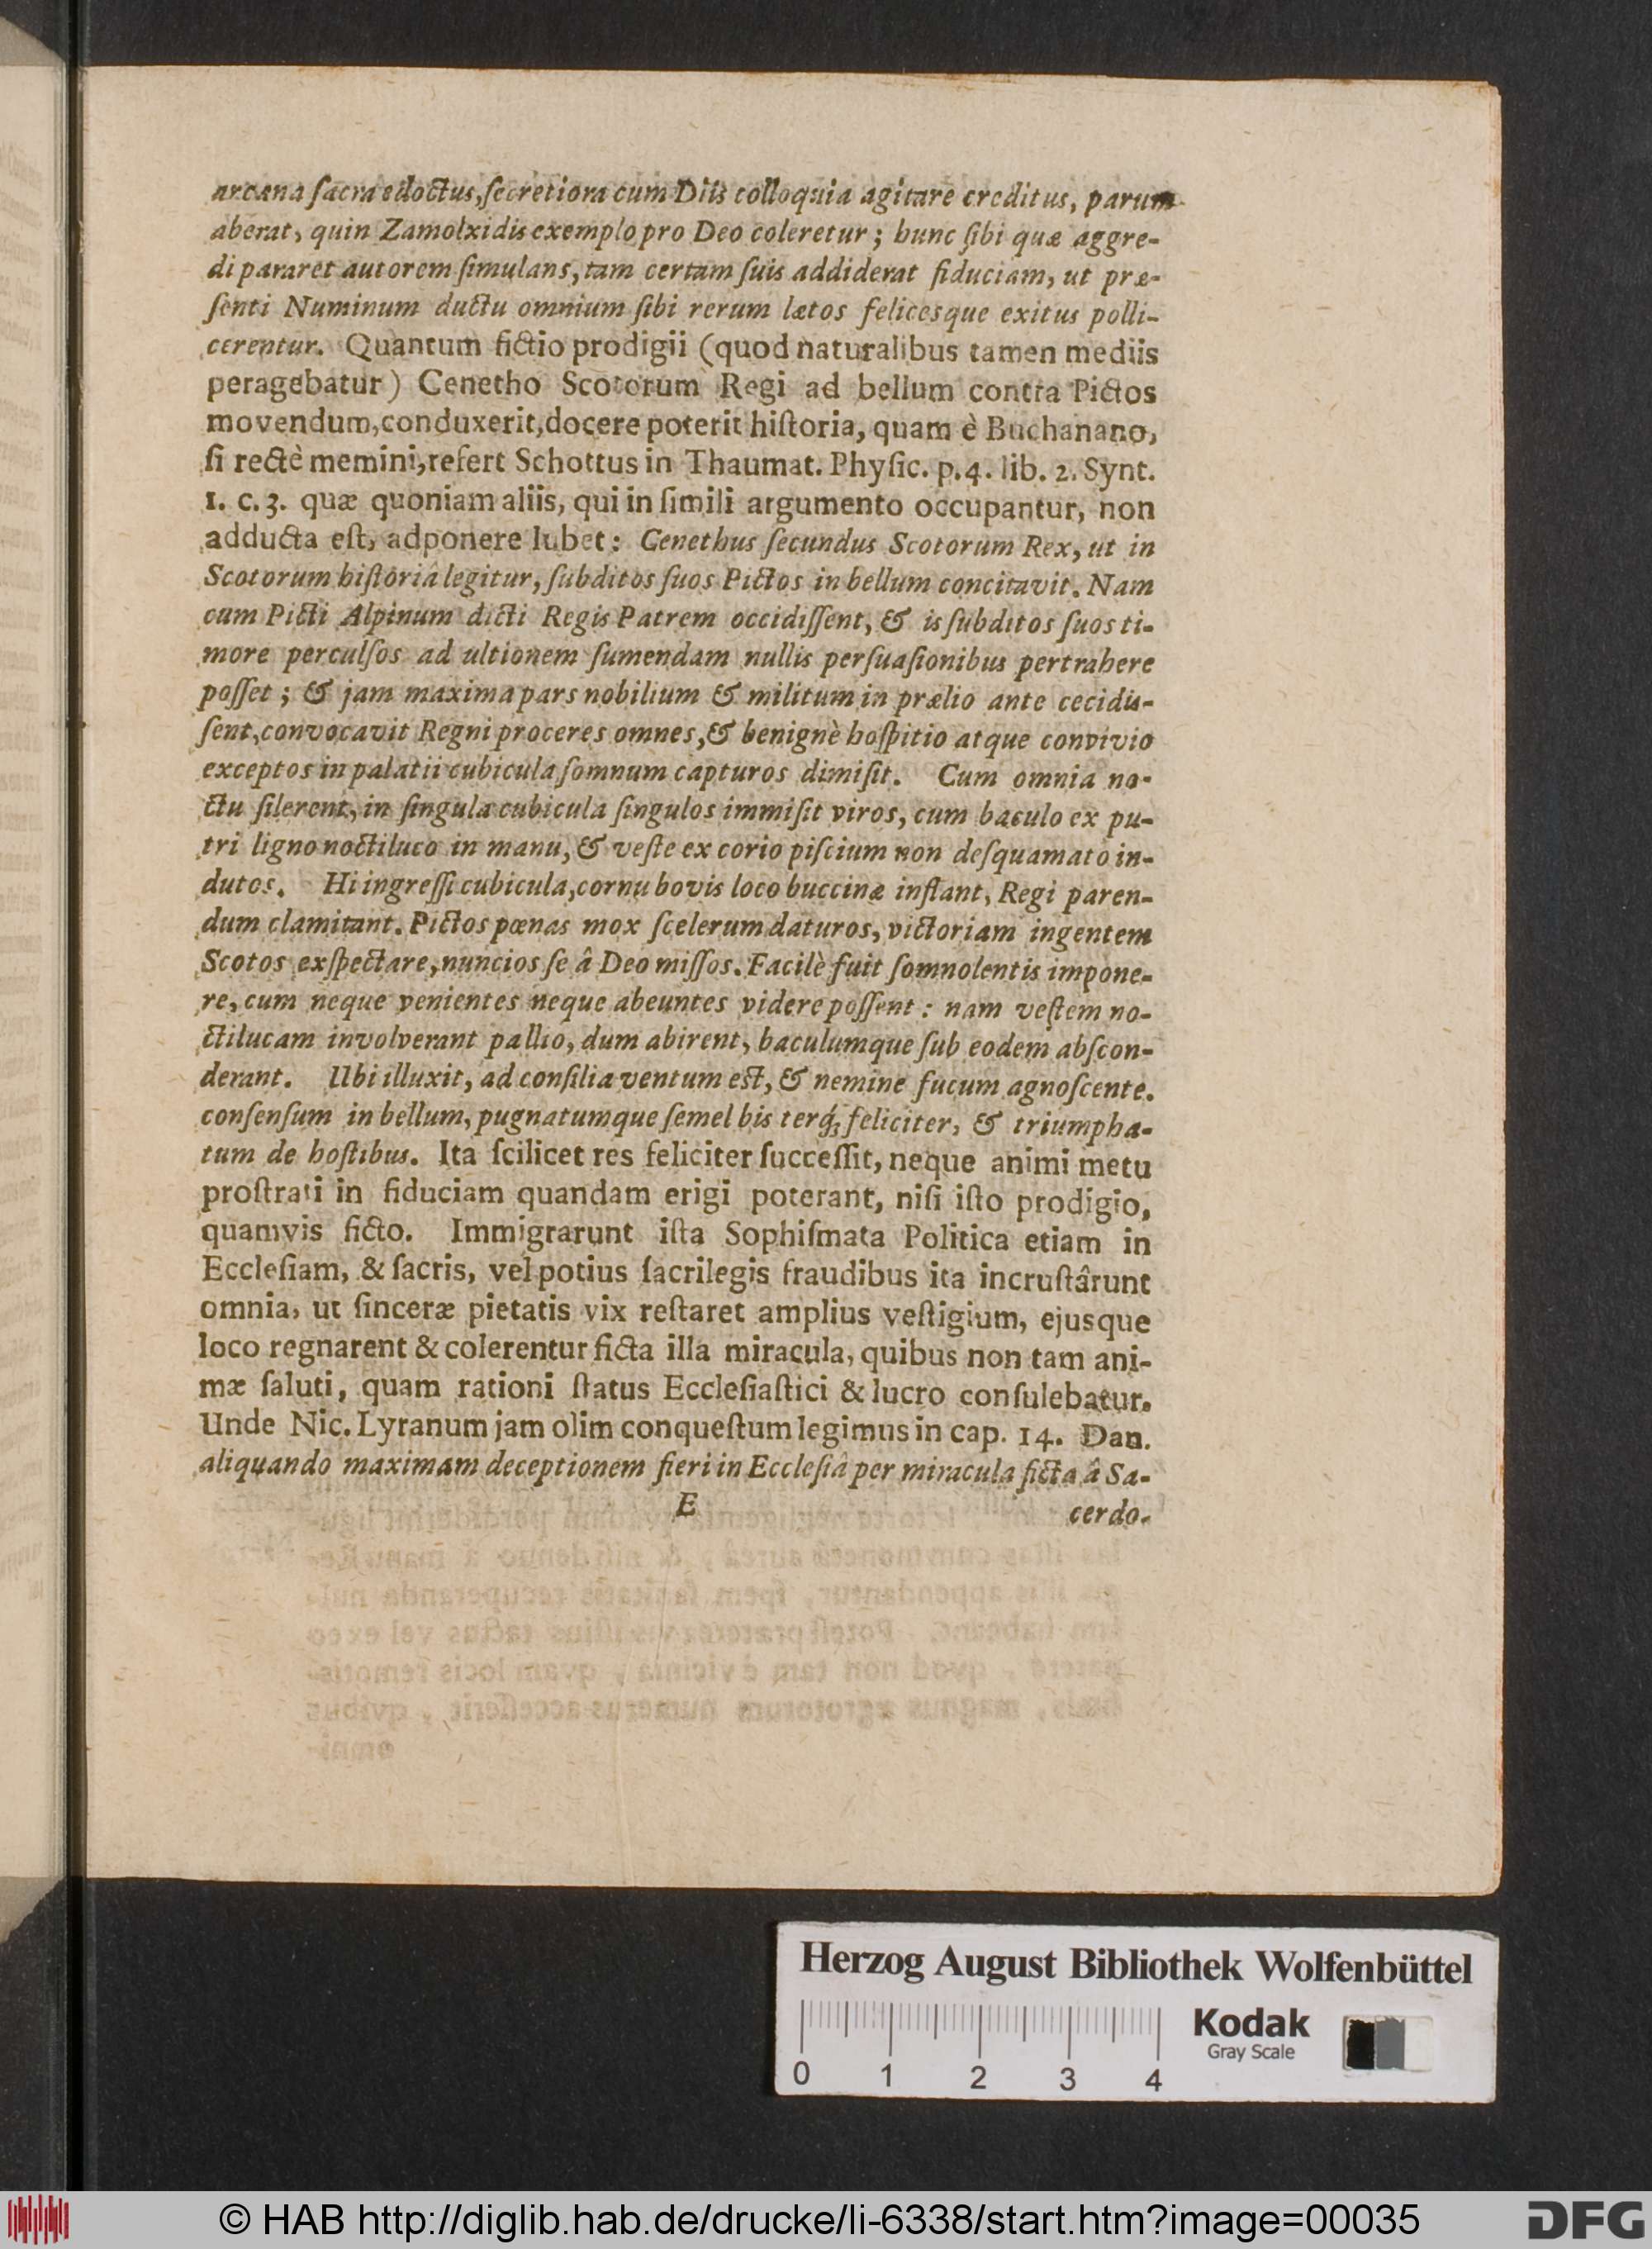 arcana ſacra edoctus, ſecretiora cum Diis colloquia agitare creditus, parum
aberat, quin Zamolxidis exemplo pro Deo coleretur; hunc ſibi quæ aggre-
di pararet autorem ſimulans, tam certam ſuis addiderat fiduciam, ut præ-
ſenti Numinum ductu omnium ſibi rerum lætos felicesque exitus polli-
cerentur. Quantum fictio prodigii (quod naturalibus tamen mediis
peragebatur) Cenetho Scotorum Regi ad bellum contra Pictos
movendum, conduxerit, docere poterit hiſtoria, quam è Buchanano,
ſi rectè memini, refert Schottus in Thaumat. Phyſic. p. 4. lib. 2. Synt.
1. c. 3. quæ quoniam aliis, qui in ſimili argumento occupantur, non
adducta eſt, adponere lubet: Cenethus ſecundus Scotorum Rex, ut in
Scotorum hiſtoriâ legitur, ſubditos ſuos Pictos in bellum concitavit. Nam
cum Picti Alpinum dicti Regis Patrem occidiſſent, & is ſubditos ſuos ti-
more perculſos ad ultionem ſumendam nullis perſuaſionibus pertrahere
poſſet; & jam maxima pars nobilium & militum in prælio ante cecidiſ-
ſent, convocavit Regni proceres omnes, & benignè hoſpitio atque convivio
exceptos in palatii cubicula ſomnum capturos dimiſit. Cum omnia no-
ctu ſilerent, in ſingula cubicula ſingulos immiſit viros, cum baculo ex pu-
tri ligno noctiluco in manu, & veſte ex corio piſcium non deſquamato in-
dutos. Hi ingreſſi cubicula, cornu bovis loco buccinæ inflant, Regi paren-
dum clamitant. Pictos pœnas mox ſcelerum daturos, victoriam ingentem
Scotos exſpectare, nuncios ſe â Deo miſſos. Facilè fuit ſomnolentis impone-
re, cum neque venientes neque abeuntes videre poſſent: nam veſtem no-
ctilucam involverant pallio, dum abirent, baculumque ſub eodem abſcon-
derant. Ubi illuxit, ad conſilia ventum eſt, & nemine fucum agnoſcente.
conſenſum in bellum, pugnatumque ſemel bis terq́; feliciter, & triumpha-
tum de hoſtibus. Ita ſcilicet res feliciter ſucceſſit, neque animi metu
proſtrati in fiduciam quandam erigi poterant, niſi iſto prodigio,
quamvis ficto. Immigrarunt iſta Sophiſmata Politica etiam in
Eccleſiam, & ſacris, vel potius ſacrilegis fraudibus ita incruſtârunt
omnia, ut ſinceræ pietatis vix reſtaret amplius veſtigium, ejusque
loco regnarent & colerentur ficta illa miracula, quibus non tam ani-
mæ ſaluti, quam rationi ſtatus Eccleſiaſtici & lucro conſulebatur.
Unde Nic. Lyranum jam olim conqueſtum legimus in cap. 14. Dan.
aliquando maximam deceptionem fieri in Eccleſiâ per miracula ficta â Sa-
E cerdo-
Herzog August Bibliothek Wolfenbüttel
Kodak
Gray Scale
0 1 2 3 4
© HAB http://diglib.hab.de/drucke/li-6338/start.htm?image=00035
DFG